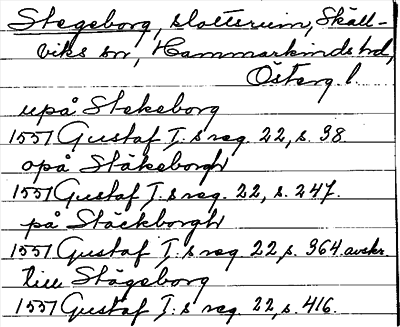 Stegeborg, slottsruin, Skäll-
viks sn, Hammarkinds hd,
Österg. l.
upå Stekeborg
1551 Gustaf I:s reg. 22, s. 98
opå Stäkeborgh
1551 Gustaf I:s reg. 22, s. 247.
på Stäckborgh
1551 Gustaf I:s reg. 22, s. 364. avskr.
till Stägeborg
1551 Gustaf I:s reg. 22, s. 416.